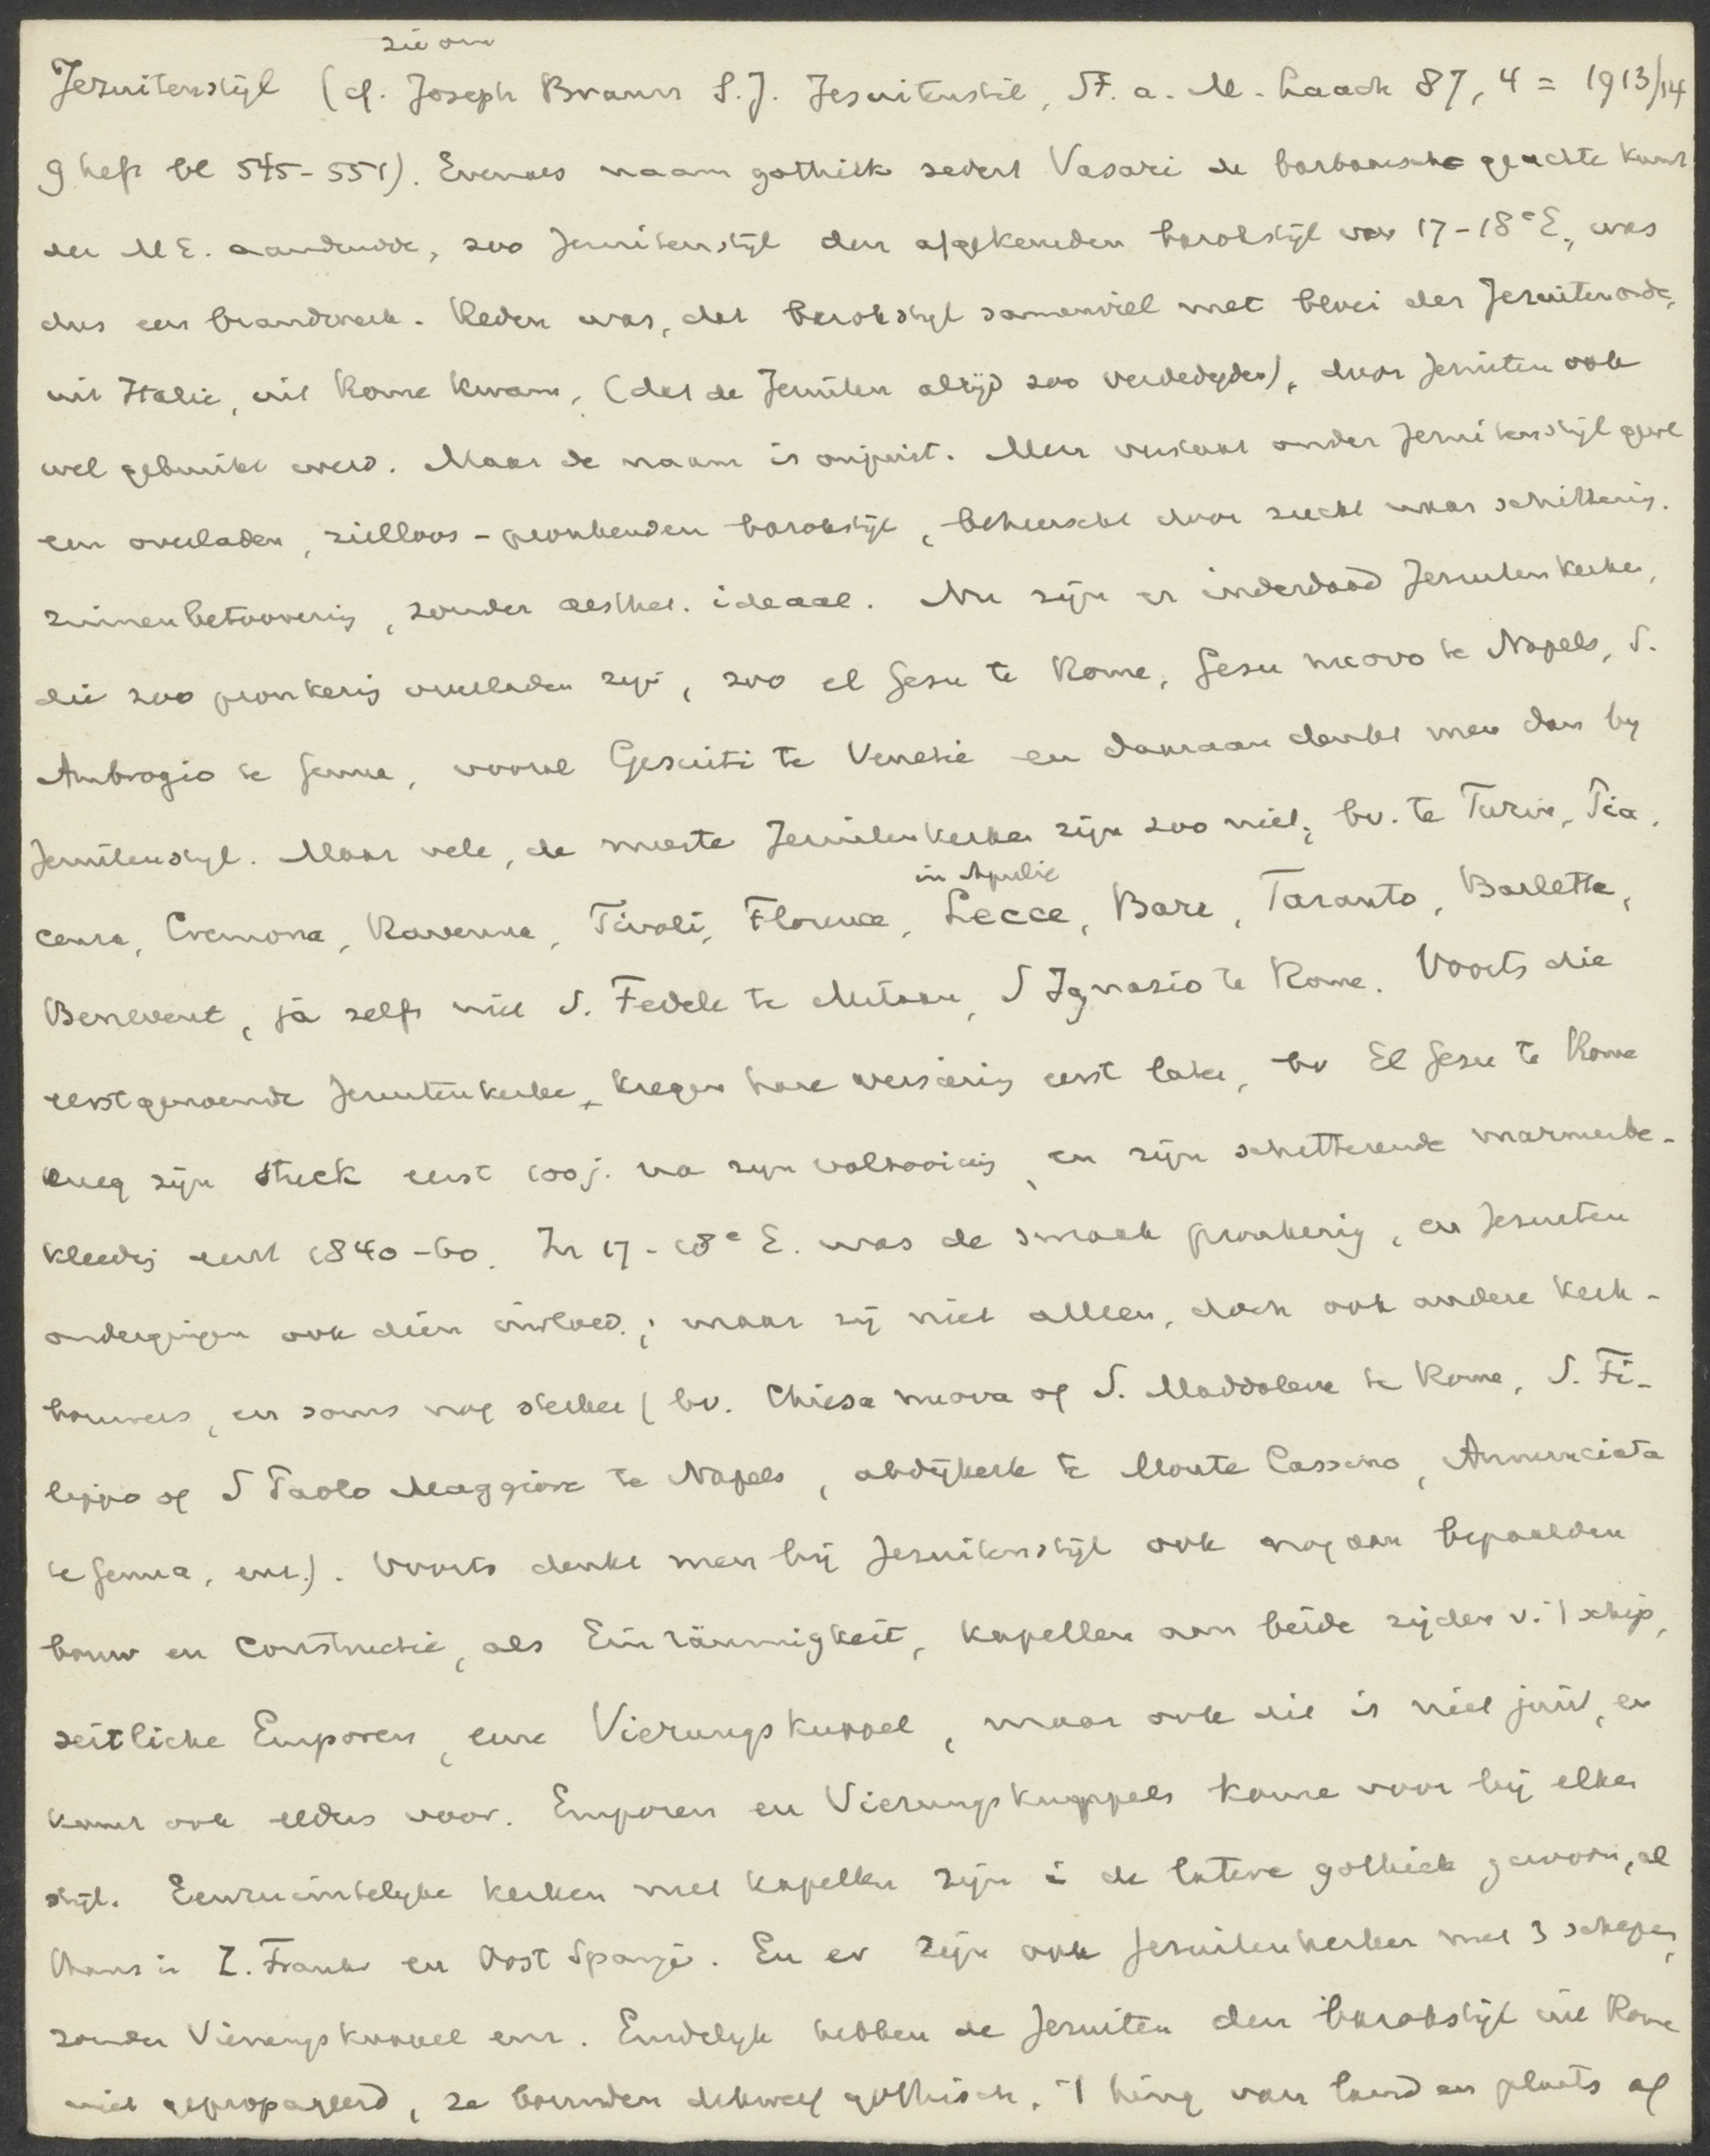 zie om
Jezuitenstijl (cf. Joseph Braun S.J. Jesuitenstil, St. a. M. Laach 87, 4 = 1913/14
9 heft bl 545-551). Evenals naam gothiek sedert Vasari de barbaarsch geachte kunst
der M E. aanduidde, zoo Jezuitenstijl den afgekeurden barokstijl van 17-18e E., was
dus een brandmerk. Reden was, dat barokstijl samenviel met bloei der Jezuitenorde,
uit Italie, uit Rome kwam, (dat de Jezuiten altijd zoo verdedigden), door Jezuiten ook
wel gebruikt werd. Maar de naam is onjuist. Men verstaat onder Jezuitenstijl gew
een overladen, zielloos-pronkenden barokstijl, beheerscht door zucht naar schittering.
zinnenbetoovering, zonder aesthet. ideaal. Nu zijn er inderdaad Jezuitenkerken,
die zoo pronkerig overladen zijn, zoo el Gesu te Rome, Gesu nuovo te Napels, S.
Ambrogio te Genua, vooral Gesuiti te Venetie en daaraan denkt men dan by
Jezuitenstyl. Maar vele, de meeste Jezuitenkerken zijn zoo niet, bv. te Turin, Pia.
in Apulie
cenza, Cremona, Ravenna, Tivoli, Florence, Lecce, Bari, Taranto, Barletta,
Benevent, ja zelfs niet S. Fedele te Milaan, S Ignazio te Rome. Voorts die
eerstgenoemde Jezuitenkerken kregen hare versiering eerst later, bv El Gesu te Rome
kreeg zijn stuck eerst 100 j. na zijn voltooiing, en zijn schitterende marmerbe-
kleedij eerst 1840-60. In 17-18e E. was de smaak pronkerig, en Jezuiten
ondergingen ook dien invloed; maar zij niet alleen, doch ook andere kerk-
bouwers, en soms nog sterker (bv. Chiesa nuova of S. Maddalena te Rome, S. Fi-
lippo of S Paolo Maggiore te Napels, abdijkerk te Monte Cassino, Annunciata
te Genua, enz.). Voorts denkt men bij Jezuitenstijl ook nog aan bepaalden
bouw en constructie, als Einräumigkeit, kapellen aan beide zijden v. 't schip,
seitliche Emporen, eine Vierungskuppel, maar ook dit is niet juist, en
komt ook elders voor. Emporen en Vierungskuppels komen voor bij elken
stijl. Eenruimtelyke kerken met kapellen zijn i de latere gothiek gewoon, al
thans in Z. Frankr en Oost Spanje. En er zijn ook Jezuitenkerken met 3 schepen,
zonder Vierungskuppel enz. Eindelyk hebben de Jezuiten den barokstijl uit Rome
niet gepropageerd, ze bouwden dikwerf gothisch. 't hing van land en plaats af